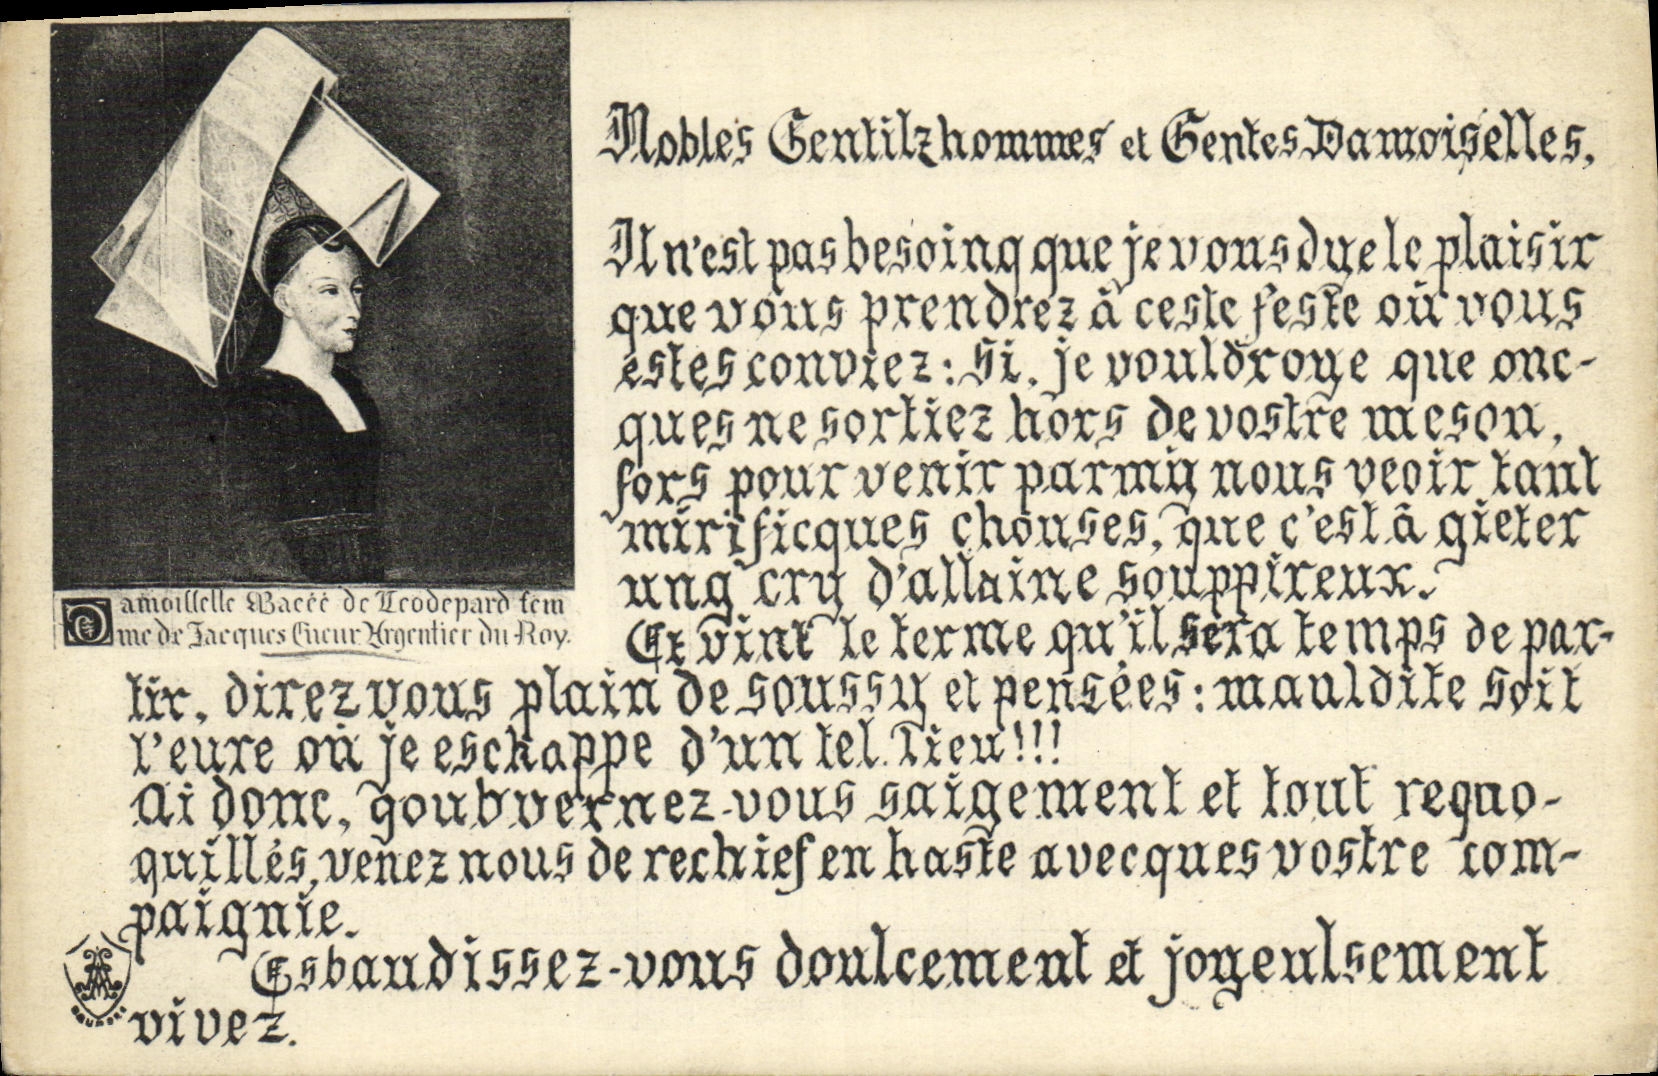 Nobles Gentilzhommes et Gentes Damoiselles,
Il n'est pas besoing que je vous dye le plaisir
que vous prendrez à ceste feste où vous
estes conviez: Si, je vouldroye que onc-
ques ne sortiez hors de vostre meson,
fors pour venir parmy nous veoir tant
mirificques chouses, que c'est à gieter
ung cry d'allaine souppireux.
Et vint le terme qu'il sera temps de par-
tir, direz vous plain de soussy et pensées: mauldite soit
l'eure où je eschappe d'un tel lieu!!!
Ai donc, goubvernez-vous saigement et tout requo-
quillés, venez nous de rechief en haste avecques vostre com-
paignie.
Esbaudissez-vous doulcement et joyeulsement
vivez.
Damoillelle Macéé de Leodepard fem
me de Jacques Cueur Argentier du Roy.
BOURGES